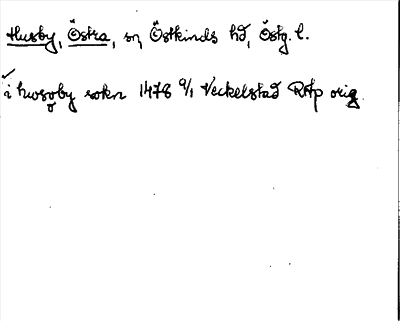 Husby, Östra, sn, Östkinds hd, Östg. l.
i hwsoby sokn 1478 9/1 Veckelstad RAp orig.